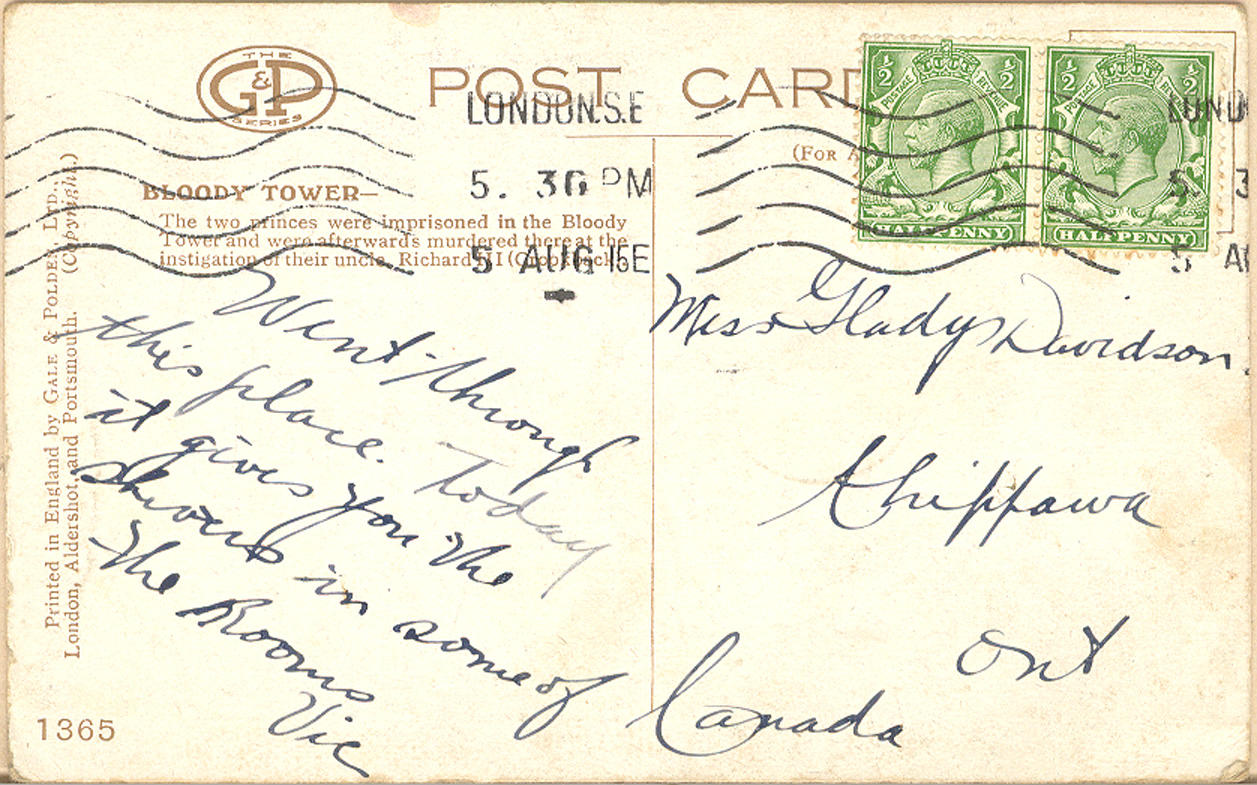 THE
G&P
SERIES
POST CARD
LONDON.S.E
5. 30 PM
5 AUG 15E
(FOR A
BLOODY TOWER—
The two princes were imprisoned in the Bloody
Tower and were afterwards murdered there at the
instigation of their uncle, Richard III
Printed in England by GALE & POLDEN, LTD.,
London, Aldershot, and Portsmouth. (Copyright.)
1365
Went through
this place. today
it gives you the
shivers in some of
the Rooms
Vic
½ ½
POSTAGE REVENUE
HALFPENNY
½ ½
POSTAGE
HALFPENNY
LOND
5 3
5 A
Miss Gladys Davidson.
Chippawa
Ont
Canada